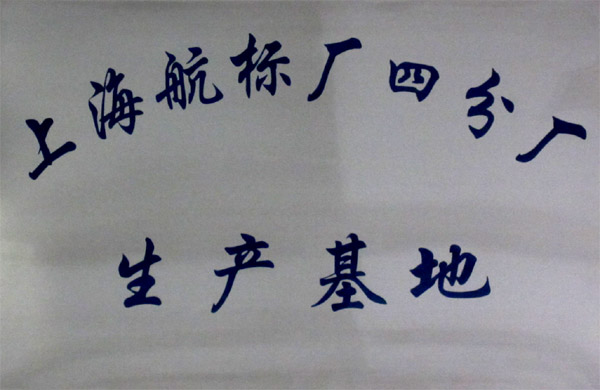 上海航标厂四分厂
生产基地